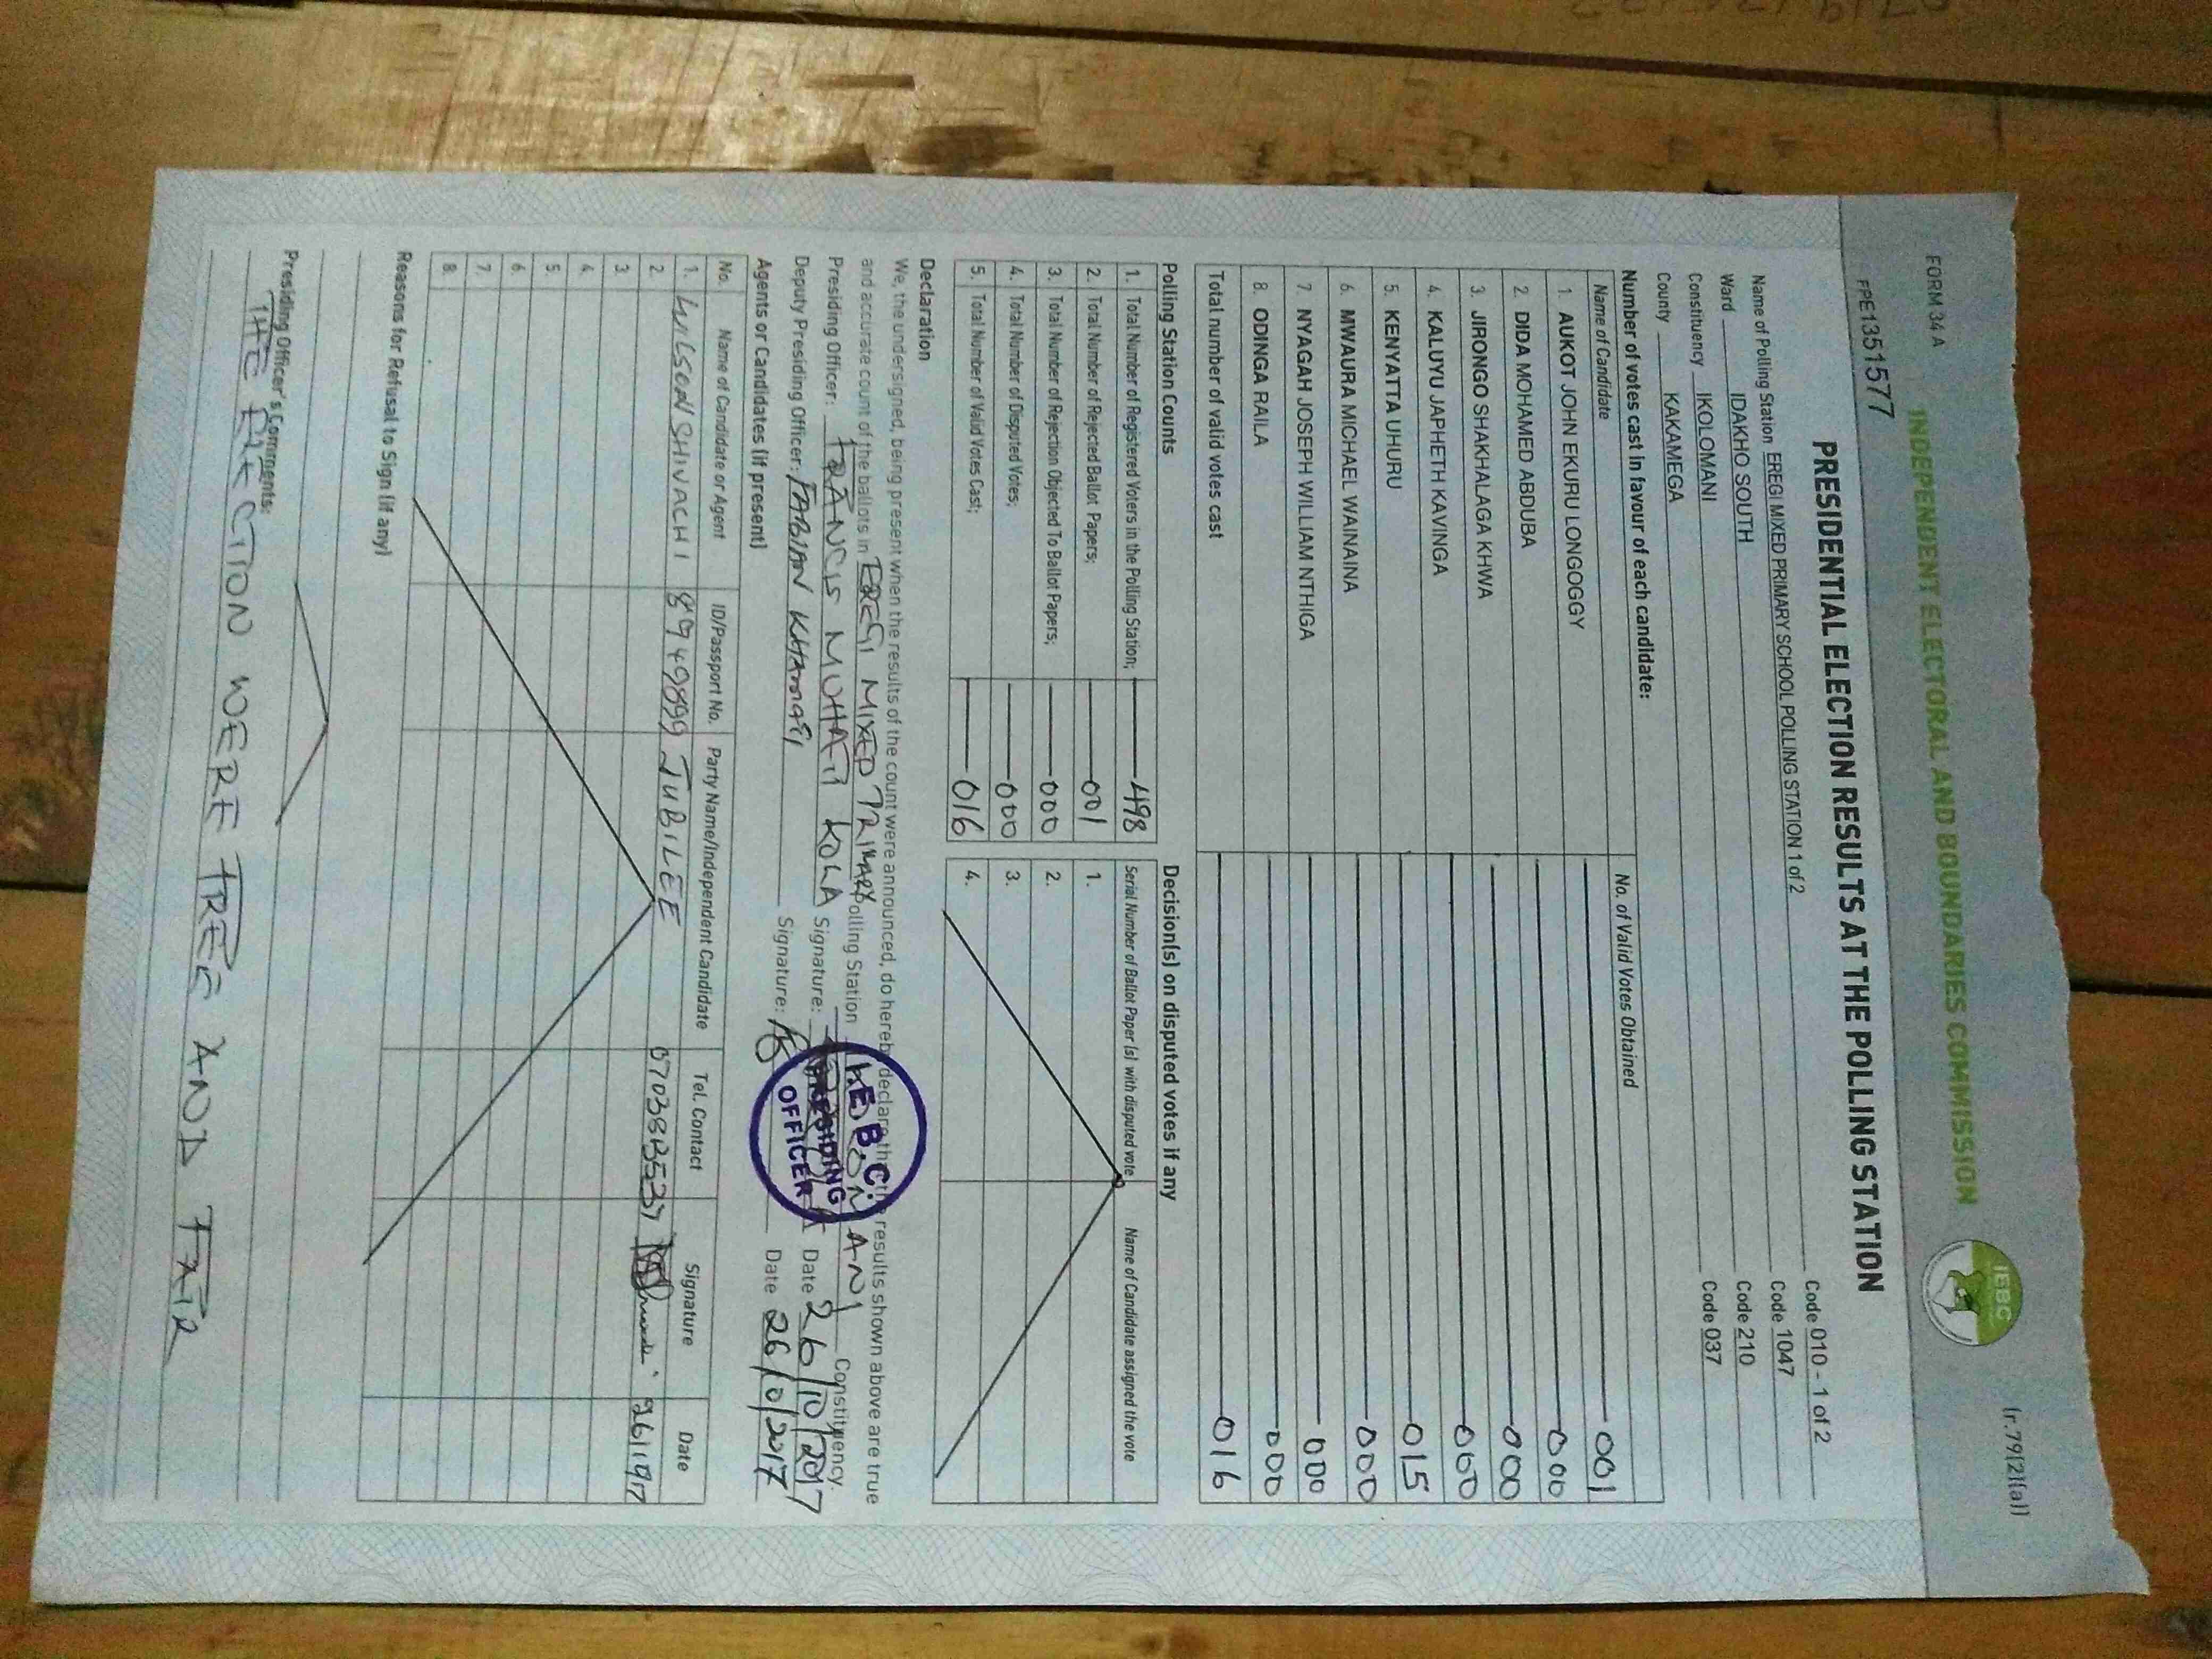 FORM 34 A
(r.79(2)(a))
INDEPENDENT ELECTORAL AND BOUNDARIES COMMISSION
IEBC
PPE1351577
PRESIDENTIAL ELECTION RESULTS AT THE POLLING STATION
Name of Polling Station EREGI MIXED PRIMARY SCHOOL POLLING STATION 1 of 2 Code 010 - 1 of 2
Ward IDAKHO SOUTH Code 1047
Constituency IKOLOMANI Code 210
County KAKAMEGA Code 037
Number of votes cast in favour of each candidate:
Name of Candidate No. of Valid Votes Obtained
1. AUKOT JOHN EKURU LONGOGGY 001
2. DIDA MOHAMED ABDUBA 000
3. JIRONGO SHAKHALAGA KHWA 000
4. KALUYU JAPHETH KAVINGA 000
5. KENYATTA UHURU 015
6. MWAURA MICHAEL WAINAINA 000
7. NYAGAH JOSEPH WILLIAM NTHIGA 000
8. ODINGA RAILA 000
Total number of valid votes cast 016
Polling Station Counts
1. Total Number of Registered Voters in the Polling Station; 498
2. Total Number of Rejected Ballot Papers; 001
3. Total Number of Rejection Objected To Ballot Papers; 000
4. Total Number of Disputed Votes; 000
5. Total Number of Valid Votes Cast; 016
Decision(s) on disputed votes if any
Serial Number of Ballot Paper (s) with disputed vote Name of Candidate assigned the vote
1.
2.
3.
4.
Declaration
We, the undersigned, being present when the results of the count were announced, do hereby declare that the results shown above are true
and accurate count of the ballots in EREGI MIXED PRIMARY Polling Station Constituency.
Presiding Officer: FRANCIS MUHATI KOLA Signature: Date 26/10/2017
Deputy Presiding Officer: FABIAN Signature: Date 26/10/2017
I.E.B.C.
PRESIDING
OFFICER
Agents or Candidates (if present)
No. Name of Candidate or Agent ID/Passport No. Party Name/Independent Candidate Tel. Contact Signature Date
1. WILSON SHIVACHI JUBILEE
2.
3.
4.
5.
6.
7.
8.
Reasons for Refusal to Sign (if any)
Presiding Officer's Comments:
THE ELECTION WERE FREE AND FAIR